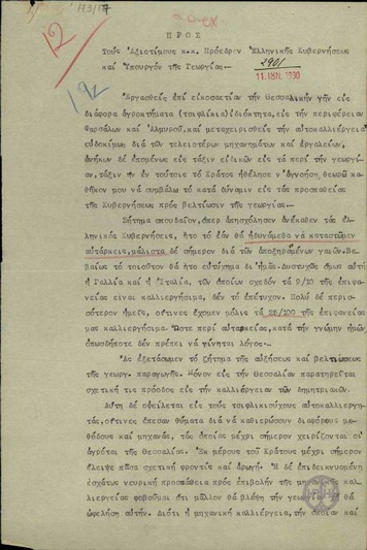 173/17
12
192
ΠΡΟΣ
Τούς Ἀξιοτίμους κ.κ. Πρόεδρον Ἑλληνικῆς Κυβερνήσεως
καί Ὑπουργόν τῆς Γεωργίας.-
2901
11. ΙΑΝ. 1930
Ἐργασθείς ἐπί εἰκοσαετίαν τήν Θεσσαλικήν γῆν εἰς
διάφορα ἀγροκτήματα (τσιφλίκια) ἰδιόκτητα, εἰς τήν περιφέρειαν
Φαρσάλων καί Ἁλμυροῦ, καί μεταχειρισθείς τήν αὐτοκαλλιέργειαν
εὐδοκίμως διά τῶν τελειοτέρων μηχανημάτων καί ἐργαλείων,
ἀνήκων δέ ἑπομένως εἰς τάξιν εἰδικῶν εἰς τά περί τήν γεωργίαν,
τάξιν ἥν ἐν τούτοις τό Κράτος ἠθέλησε ν'ἀγνοήσῃ, θεωρῶ
καθῆκον μου νά συμβάλω τό κατά δύναμιν εἰς τάς προσπαθείας
τῆς Κυβερνήσεως πρός βελτίωσιν τῆς γεωργίας.
Ζήτημα σπουδαῖον, ὅπερ ἀπησχόλησεν ἀνέκαθεν τάς ἑλ-
ληνικάς Κυβερνήσεις, ἦτο τό ἐάν θά ἠδυνάμεθα νά καταστῶμεν
αὐτάρκεις, μάλιστα δέ σήμερον διά τῶν ἀποξηραμένων γαιῶν. Βε-
βαίως τό τοιοῦτον θά ἦτο εὐτύχημα δι'ἡμᾶς. Δυστυχῶς ὅμως αὐτή
ἡ Γαλλία καί ἡ Ἰταλία, τῶν ὁποίων σχεδόν τά 9/10 τῆς ἐπιφα-
νείας εἶναι καλλιεργήσιμα, δέν τό ἐπέτυχον. Πολύ δέ περισ-
σότερον ἡμεῖς, οἵτινες ἔχομεν μόλις τά 25/100 τῆς ἐπιφανείας
μας καλλιεργήσιμα. Ὥστε περί αὐταρκείας, κατά τήν γνώμην ἡμῶν,
οὐδόλως δέν πρέπει νά γίνηται λόγος.
Ἄς ἐξετάσωμεν τό ζήτημα τῆς αὐξήσεως καί βελτιώσεως
τῆς γεωργ. παραγωγῆς. Μόνον εἰς τήν Θεσσαλίαν παρατηρεῖται
σχετική τις πρόοδος εἰς τήν καλλιέργειαν τῶν δημητριακῶν.
Αὕτη δέ ὀφείλεται εἰς τούς τσιφλικούχους αὐτοκαλλιεργη-
τάς, οἵτινες ἔπεσαν θύματα διά νά καθιερώσουν διαφόρους με-
θόδους καί μηχανάς, τάς ὁποίας μέχρι σήμερον χειρίζονται οἱ
ἀγρόται τῆς Θεσσαλίας. Ἐκ μέρους τοῦ Κράτους μέχρι σήμερον
ἔλειψε πᾶσα σχετική φροντίς καί ἀρωγή. Ἡ δέ ἐπιδεικνυομένη
ἐσχάτως νευρική προσπάθεια πρός ἐπιβολήν τῆς
καλλιεργείας φοβοῦμαι ὅτι μᾶλλον θά βλάψῃ τήν
ὠφελήσῃ αὐτήν. Διότι ἡ μηχανική καλλιέργεια, τήν ὁποίαν καί